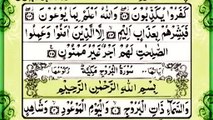 كَفَرُوا يُكَذِّبُونَ ۝ وَاللَّهُ أَعْلَمُ بِمَا يُوعُونَ ۝
فَبَشِّرْهُم بِعَذَابٍ أَلِيمٍ ۝ إِلَّا الَّذِينَ آمَنُوا وَعَمِلُوا
الصَّالِحَاتِ لَهُمْ أَجْرٌ غَيْرُ مَمْنُونٍ ۝
سُورَةُ الْبُرُوجِ مَكِّيَّةٌ
بِسْمِ اللَّهِ الرَّحْمَٰنِ الرَّحِيمِ
وَالسَّمَاءِ ذَاتِ الْبُرُوجِ ۝ وَالْيَوْمِ الْمَوْعُودِ ۝ وَشَاهِدٍ